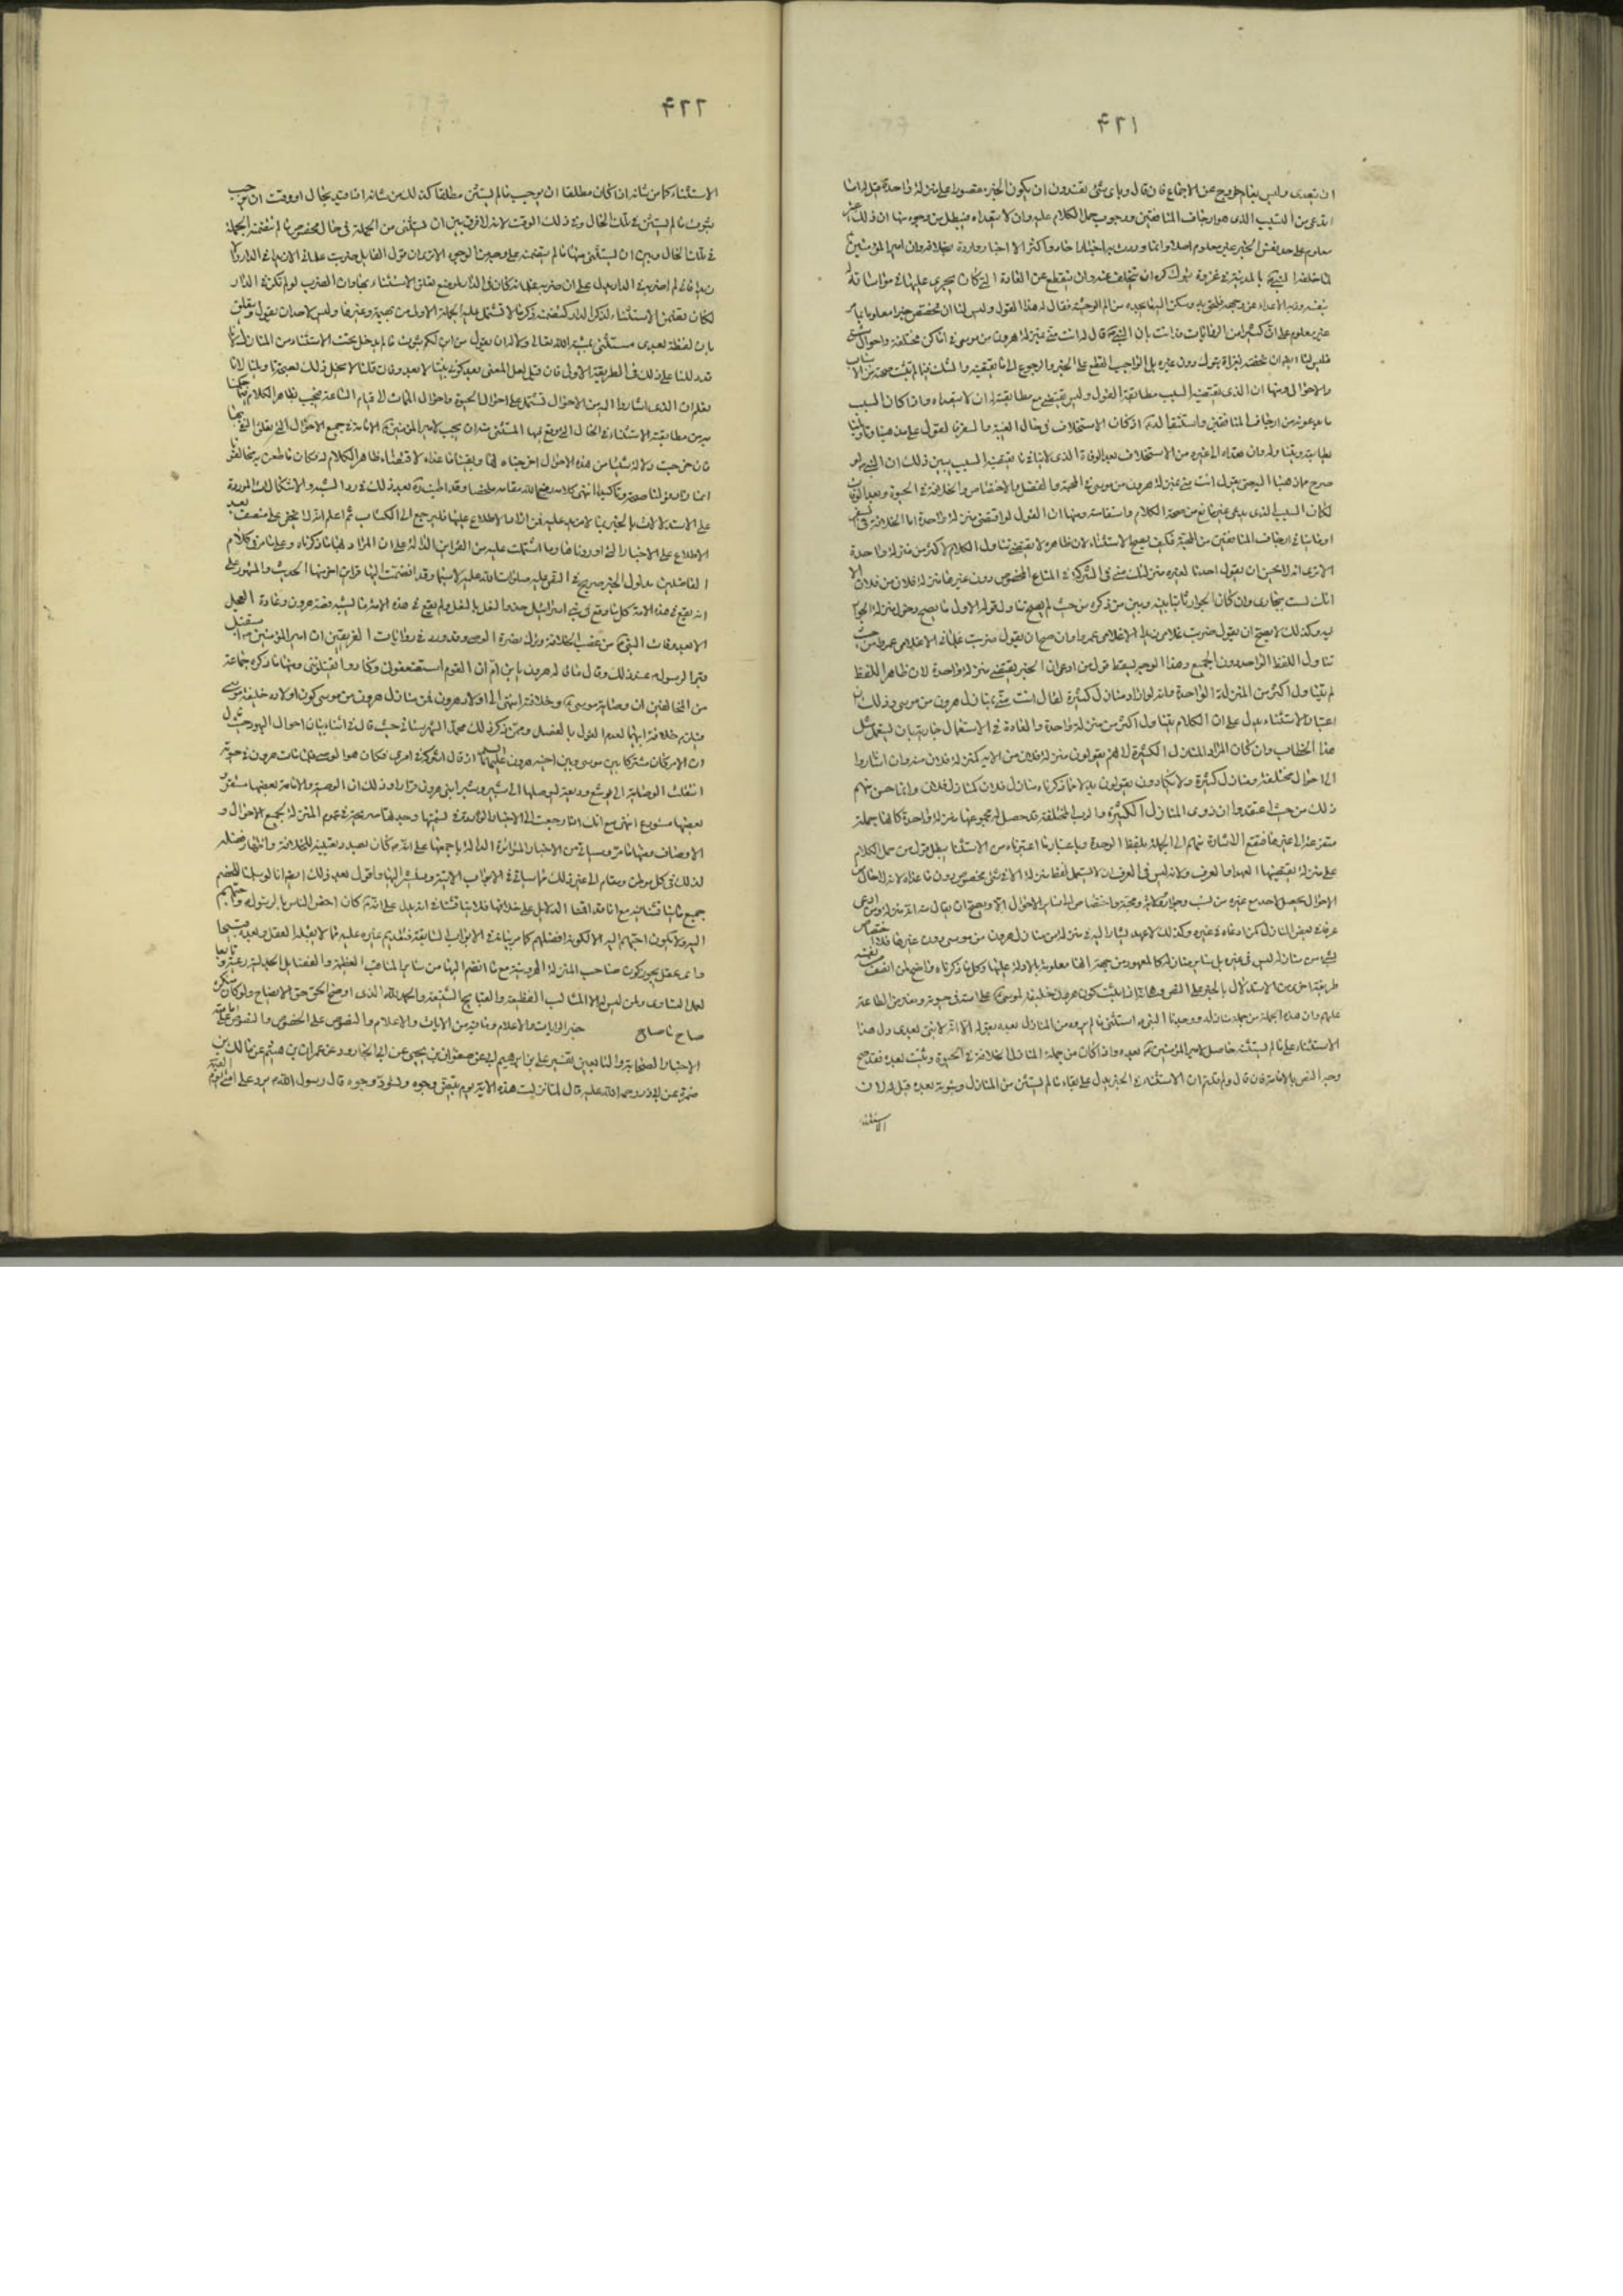 ۴۲۱
ان تعدى وليس بقيام خروج عن الاجماع فان قال وباى شئ تقدرون ان يكون الخبر مقصورا على منزلة واحدة قيل له انا
الذى هو ارجاف المنافقين ووجوب حمل الكلام عليه وان لا يتعداه فيبطل من وجوه منها ان ذلك غير
معلوم على حد نفس الخبر غير معلوم اصلا وانما وردت به اخبار احاد واكثر الاخبار واردة بخلافه وان امير المؤمنين ع
لما خلفه النبى بالمدينة فى غزوة تبوك كره ان يتخلف عنه وان ينقطع عن العادة التى كان يجرى عليها فى مواساته له
بنفسه وذبه الاعداء عن وجهه فلحق به وسكن اليه ما يجده من الم الوحشة فقال له هذا القول وليس لنا ان نخصص خبرا معلوما بامر
غير معلوم على ان كثيرا من الروايات وردت بان النبى ص قال له انت منى بمنزلة هرون من موسى فى اماكن مختلفة واحوال شتى
فليس لنا ايضا ان نخصه بغزاة تبوك دون غيره بل الواجب القطع على الخبر والرجوع الى ما يقتضيه والشك فيما لم يثبت صحته من الاسباب
والاحوال ومنها ان الذى يقتضيه السبب مطابقة القول له وليس يقتضى مع مطابقته له ان لا يتعداه واذا كان السبب
ما يدعونه من ارجاف المنافقين واستثقاله او كان الاستخلاف فى حال الغيبة والسفر فالقول على مذهبنا وتاويلنا
يطابقه ويتناوله وان تعداه الى غيره من الاستخلاف بعد الوفاة الذى لا ينافى ما يقتضيه السبب يبين ذلك ان النبى ص لو
صرح بما ذهبنا اليه حتى يقول انت منى بمنزلة هرون من موسى فى المحبة والفضل والاختصاص والخلافة فى الحيوة وبعد الوفات
لكان السبب الذى يدعى غير مانع من صحة الكلام واستقامته ومنها ان القول لو اقتضى منزلة واحدة اما الخلافة فى السفر
او ما ينافى ارجاف المنافقين من المحبة فكيف يصح الاستثناء لان ظاهره لا يقتضى تناول الكلام لاكثر من منزلة واحدة
الا ترى انه لا يحسن ان يقول احدنا لغيره منزلتك منى فى الشركة فى المتاع المخصوص دون غيرها منزلة فلان من فلان الا
انك لست بجارى وان كان الجوار ثابتا بينه وبين من ذكره من حيث لم يصح تناول قوله الاول ما يصح دخول منزلة الجوار
فيه وكذلك لا يصح ان يقول ضربت غلامى زيدا الا غلامى عمرا وان صح ان يقول ضربت غلمانى الا غلامى عمرا من حيث
تناول اللفظ الواحد دون الجميع وبهذا الوجه يسقط قول من ادعى ان الخبر يقتضى منزلة واحدة لان ظاهر اللفظ
لم يتناول اكثر من المنزلة الواحدة وانه لو اراد منازل كثيرة لقال انت منى بمنازل هرون من موسى وذلك ان
اعتبار الاستثناء يدل على ان الكلام يتناول اكثر من منزلة واحدة والعادة فى الاستعمال جارية بان يستعمل مثل
هذا الخطاب وان كان المراد المنازل الكثيرة لانهم يقولون منزلة فلان من الامير كمنزلة فلان منه وان اشاروا
الى احوال مختلفة ومنازل كثيرة ولا يكادون يقولون بدلا مما ذكرناه منازل فلان كمنازل فلان وانما حسن منهم
ذلك من حيث اعتقدوا ان ذوى المنازل الكثيرة والرتب المختلفة قد حصل لهم بمجموعها منزلة واحدة كانها جملة
متفرعة الى غيرها فتقع الاشارة منهم الى الجملة بلفظ الوحدة وباعتبار ما اعتبرناه من الاستثنا يبطل قول من حمل الكلام
على منزلة يقتضيها العهد او العرف ولانه ليس فى العرف ان لا يستعمل لفظ منزلة الا فى شئ مخصوص دون ما عداه لانه لا حال من
الاحوال يحصل لاحد مع غيره من نسب وجوار وولاية ومحبة واختصاص الى ساير الاحوال الا ويصح ان يقال فيه انه منزلة ومن ادعى
عرفا فى بعض المنازل كمن ادعاه فى غيره وكذلك لا عهد يشار اليه فى منزلة من منازل هرون من موسى دون غيرها فلا اختصاص
بشئ من منازله ليس فى غيره بل ساير منازله كالمعهود من جهة انها معلومة بالادلة عليها وكل ما ذكرناه واضح لمن انصف نفسه
طريقة اخرى من الاستدلال بالخبر على النص وهى انه اذا ثبت كون هرون خليفة لموسى على امته فى حيوته ومفترض الطاعة
عليهم وان هذه المنزلة من جملة منازله ووجدنا النبى ص استثنى ما لم يرده من المنازل بعده بقوله الا انه لا نبى بعدى دل هذا
الاستثناء على ان ما لم يستثنه حاصل لامير المؤمنين ع بعده واذا كان من جملة المنازل الخلافة فى الحيوة وثبتت بعده فقد صح
وجه النص بالامامة فان قال ولم قلتم ان الاستثناء فى الخبر يدل على بقاء ما لم يستثن من المنازل وثبوته بعده قيل له لان
الاستثناء
۴۲۲
الاستثناء كما من شانه اذا كان مطلقا ان يوجب ما لم يستثن مطلقا كذلك من شانه اذا قيد بحال او وقت ان يوجب
ثبوت ما لم يستثن فى تلك الحال وفى ذلك الوقت لانه لا فرق بين ان يستثنى من الجملة فى حال مخصوص ما لم تتضمنه الجملة
فى تلك الحال وبين ان يستثنى منها ما لم تتضمنه على وجه من الوجوه الا ترى ان قول القايل ضربت غلمانى الا زيدا فى الدار والا
زيدا فانى لم اضربه فى الدار يدل على ان ضربه غلمانه كان فى الدار لموضع تعلق الاستثناء بها وان الضرب لو لم يكن فى الدار
لكان تضمن الاستثناء لذكر الدار كتضمنه ذكر ما لا تشتمل عليه الجملة الاولى من بهيمة وغيرها وليس لاحد ان يقول ويتعلق
بان لفظة بعدى مستثنى بمشية الله تعالى ولا له ان يقول من اين لكم ثبوت ما لم يدخل تحت الاستثناء من المنازل لانا
قد دللنا على ذلك فى الطريقة الاولى فان قيل لعل المعنى بعد كونى نبيا لا بعد وفاتى قلنا لا يخل ذلك بصحة تاويلنا لانا
نعلم ان الذى اشاروا اليه من الاحوال تشتمل على احوال الحيوة واحوال الممات الى قيام الساعة فيجب بظاهر الكلام وبما حكمنا
به من مطابقة الاستثناء فى الحال التى وقع فيها المستثنى منه ان يجب لامير المؤمنين ع الامامة فى جميع الاحوال التى تعلق النفى بها
فان خرجت دلالة شيئا من هذه الاحوال اخرجناه لها وابقينا ما عداه لاقتضاء ظاهر الكلام له فكان ما طعن به مخالفونا
انما زاد قولنا صحة وتاكيدا انتهى كلامه رفع الله مقامه ملخصا وقد اطنب ره بعد ذلك فى رد الشبه والاشكالات الموردة
على الاستدلال بالخبر بما لا مزيد عليه فمن اراد الاطلاع عليها فليرجع الى الكتاب ثم اعلم انه لا يخفى على منصف بعد
الاطلاع على الاخبار التى اوردناها وما اشتملت عليه من القراين الدالة على ان المراد بها ما ذكرناه وعلى ما مر فى كلام
الفاضلين ان مدلول الخبر صريح فى النص عليه صلوات الله عليه لا سيما وقد انضمت اليها قراين اخر منها الحديث المشهور على
انه يقع فى هذه الامة كل ما وقع فى بنى اسرائيل حذو النعل بالنعل ولم يقع فى هذه الامة ما يشبه قصة هرون وعبادة العجل
الا بعد وفات النبى ص من غصب الخلافة وترك نصرة الوصى وقد ورد فى روايات الفريقين ان امير المؤمنين ع استقبل
قبر الرسول ص عند ذلك وقال ما قاله هرون يا ابن ام ان القوم استضعفونى وكادوا يقتلوننى ومنها ما ذكره جماعة
من المخالفين ان وصاية موسى وخلافته انتهى الى اولاد هرون فمن منازل هرون من موسى كون اولاده خليفة موسى
فيلزم خلافة ابيهما لعدم القول بالفصل وممن ذكر ذلك محمد الشهرستانى حيث قال فى اثناء بيان احوال اليهود حيث قال
ان الامر كان مشتركا بين موسى وبين اخيه هرون عليهما السلم اذ قال اشركه فى امرى فكان هو الوصى فلما مات هرون فى حيوته
انتقلت الوصاية الى يوشع وديعة ليوصلها الى شبير وشبر ابنى هرون قرارا وذلك ان الوصية والامامة بعضها مستقر
وبعضها مستودع انتهى مع انك اذا رجعت الى الاخبار الواردة فى تسميتهما وجدتها صريحة فى عموم المنزلة لجميع الاحوال و
الاوصاف ومنها ما مر وسياتى من الاخبار المتواترة الدالة باجمعها على انه ص كان بصدد تعيينه للخلافة واظهار فضله
لذلك فى كل موطن ومقام الى غير ذلك مما سياتى فى الابواب الاتية وسنشير اليها واقول بعد ذلك ايضا انا لو سلمنا للخصم
جميع ما يناقشنا فيه مع انا قد اقمنا الدلايل على خلافها فلا يناقشنا فى انه يدل على انه ع كان اخص الناس بالرسول ص واحبهم
اليه ولا يكون احبهم اليه الا لكونه افضلهم كما مر بيانه فى الابواب السابقة فتقديم غيره عليه مما لا يقبله العقل ويعده قبيحا
واى عقل يجوز كون صاحب المنزلة الهرونية مع ما انضم اليها من ساير المناقب العظيمة والفضايل الجليلة رعية وتابعا
لمن ليس له الا المثالب الفظيعة والقبايح الشنيعة والحمد لله الذى اوضح الحق حق الايضاح
خبر الرايات والاعلام وما فيه من الايات والاعلام والنصوص على الخصوص
الاخبار الصحابة والتابعين تفسير على بن ابرهيم ابى عن صفوان بن يحيى عن ابى الجارود عن عمران بن هيثم عن مالك بن
ضمرة عن ابى ذر رحمة الله عليه قال لما نزلت هذه الاية يوم تبيض وجوه وتسود وجوه قال رسول الله ص يرد على امتى يوم القيمة